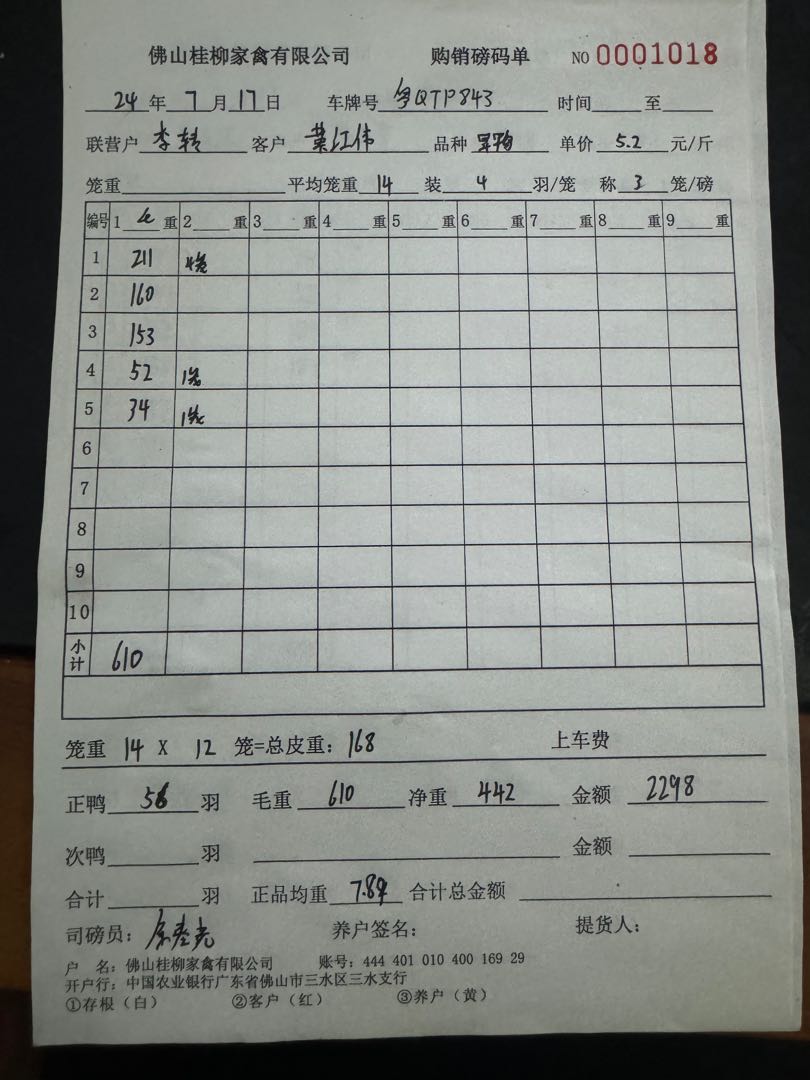 佛山桂柳家禽有限公司 购销磅码单 NO 0001018
24 年 7 月 17 日 车牌号 粤QTP843 时间 至
联营户 李转 客户 叶江伟 品种 单价 5.2 元/斤
笼重 平均笼重 14 装 4 羽/笼 称 3 笼/磅
编号 1 重 2 重 3 重 4 重 5 重 6 重 7 重 8 重 9 重
1 211 4笼
2 160
3 153
4 52 1笼
5 34 1笼
6
7
8
9
10
小计 610
笼重 14 X 12 笼=总皮重: 168 上车费
正鸭 56 羽 毛重 610 净重 442 金额 2298
次鸭 羽 金额
合计 羽 正品均重 7.89 合计总金额
司磅员: 养户签名: 提货人:
户 名: 佛山桂柳家禽有限公司 账号: 444 401 010 400 169 29
开户行: 中国农业银行广东省佛山市三水区三水支行
①存根(白) ②客户(红) ③养户(黄)